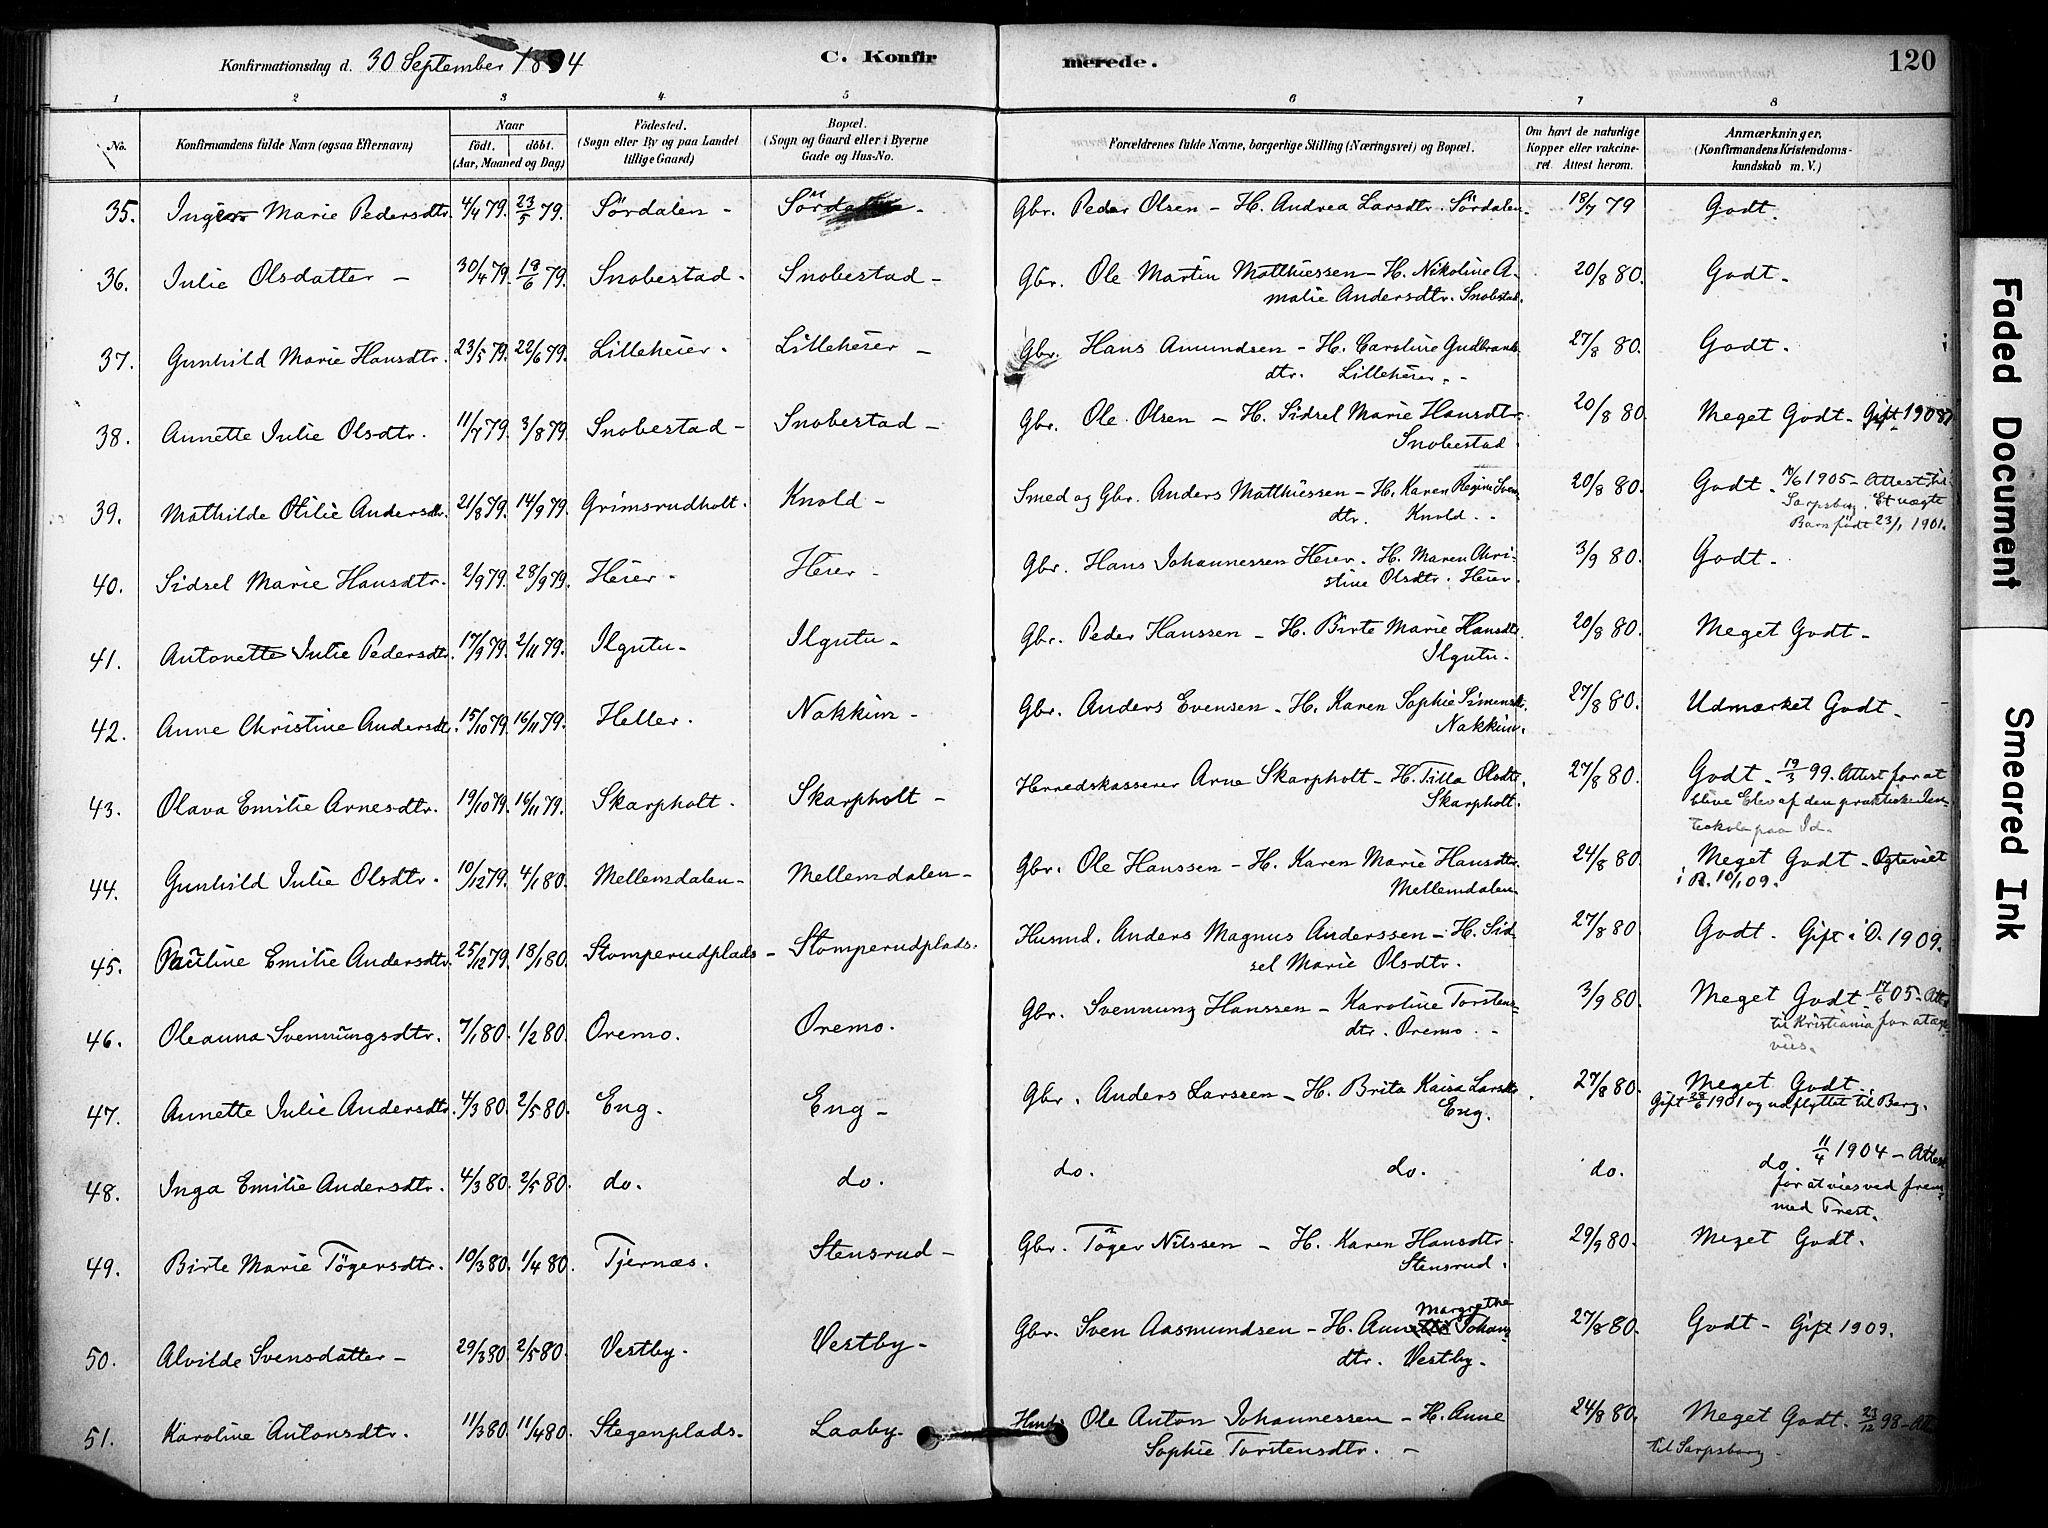 Konfirmationsdag d. 30 September 1894
C. Konfirmerede.
120
1 2 3 4 5 6 7 8
No.
Konfirmandens fulde Navn (ogsaa Efternavn)
Naar
födt. döbt.
(Aar, Maaned og Dag)
Födested.
(Sogn eller By og paa Landet tillige Gaard)
Bopæl.
(Sogn og Gaard eller i Byerne Gade og Hus-No.
Forældrenes fulde Navne, borgerlige Stilling (Næringsvei) og Bopæl.
Om havt de naturlige Kopper eller vakcineret. Attest herom.
Anmærkninger.
(Konfirmandens Kristendomskundskab m. V.)
35. Marie Pedersdtr. 4/4 79. 23/5 79. Sördalen - Gbr. Peder Olsen - H. Andrea Larsdtr. Sördalen. 18/7 79 Godt.
36. Julie Olsdatter - 30/4 79. 19/6 79. Snobestad - Snobestad - Gbr. Ole Martin Matthiessen - H. Nikoline A-
malie Andersdtr. Snobestad. 20/8 80. Godt.
37. Gunhild Marie Hansdtr. 23/5 79. 22/6 79. Lilleheier. Lilleheier - Gbr. Hans Amundsen - H. Caroline Gudbrands
dtr. Lilleheier. - 27/8 80. Godt.
38. Annette Julie Olsdtr. 11/7 79. 3/8 79. Snobestad - Snobestad - Gbr. Ole Olsen - H. Sidsel Marie Hansdtr.
Snobestad. 20/8 80. Meget Godt - Gift 1908
39. Mathilde Otilie Andersdtr. 21/8 79. 14/9 79. Grimsrudholt. Knold - Smed og Gbr. Anders Matthiessen - H. Karen Regine Svens
dtr. Knold. - 20/8 80. Godt. 1905 - Attest til
Sarpsborg. Et uægte
Barn födt 23/1 1901.
40. Sidsel Marie Hansdtr. 2/9 79. 28/9 79. Heier. Heier. Gbr. Hans Johannessen Heier. H. Maren Chri-
stine Olsdtr. Heier. 3/9 80. Godt.
41. Antonette Julie Pedersdtr. 17/9 79. 2/11 79. Ilgutu - Ilgutu - Gbr. Peder Hanssen - H. Birte Marie Hansdtr.
Ilgutu. 20/8 80. Meget Godt -
42. Anne Christine Andersdtr. 15/10 79. 16/11 79. Heller. Nakkim - Gbr. Anders Evensen - H. Karen Sophie Simensdtr.
Nakkim. 27/8 80. Udmærket Godt -
43. Olava Emilie Arnesdtr. 19/10 79. 16/11 79. Skarpholt. Skarpholt - Herredskasserer Arne Skarpholt - H. Tilla Olsdtr.
Skarpholt. 27/8 80. Godt. 19/3 99. Attest for at
blive Elev af den praktiske
paa Id.
44. Gunhild Julie Olsdtr. 10/12 79. 4/1 80. Mellemdalen - Mellemdalen - Gbr. Ole Hanssen - H. Karen Marie Hansdtr.
Mellemdalen. 24/8 80. Meget Godt - Egteviet
i R. 10/1 09.
45. Pauline Emilie Andersdtr. 25/12 79. 18/1 80. Stomperudplads - Stomperudplads. Husmd. Anders Magnus Anderssen - H. Sid-
sel Marie Olsdtr. 27/8 80. Godt. Gift i D. 1909.
46. Oleanna Svennungsdtr. 7/1 80. 1/2 80. Oremo. Oremo. Gbr. Svennung Hanssen - Karoline Torstens-
dtr. Oremo. - 3/9 80. Meget Godt - 17/6 05 - Att
til Kristiania for at ægte
vies.
47. Annette Julie Andersdtr. 4/3 80. 2/5 80. Eng. Eng - Gbr. Anders Larssen - H. Brita Kaisa Larsdtr.
Eng. 27/8 80. Meget Godt
Gift 28/6 1901 og udflyttet til Berg.
48. Inga Emilie Andersdtr. 4/3 80. 2/5 80. do. do. do. do. do. do. 11/4 1904 - Attest
for at vies ved frem-
med Prest.
49. Birte Marie Tögersdtr. 10/3 80. 1/4 80. Tjernæs. Stensrud - Gbr. Töger Nilssen - H. Karen Hansdtr.
Stensrud. 29/9 80. Meget Godt.
50. Alvilde Svensdatter - 29/3 80. 2/5 80. Vestby. Vestby - Gbr. Sven Aasmundsen - H. Anne Margrethe Johans-
dtr. Vestby. 27/8 80. Godt - Gift 1909.
51. Karoline Antonsdtr. 11/3 80. 11/4 80. Stegenplads. Laaby - Ole Anton Johannessen - H. Anne
Sophie Torstensdtr. - 24/8 80. Meget Godt. 23/12 98 - Att
til Sarpsborg -
Faded Document
Smeared Ink